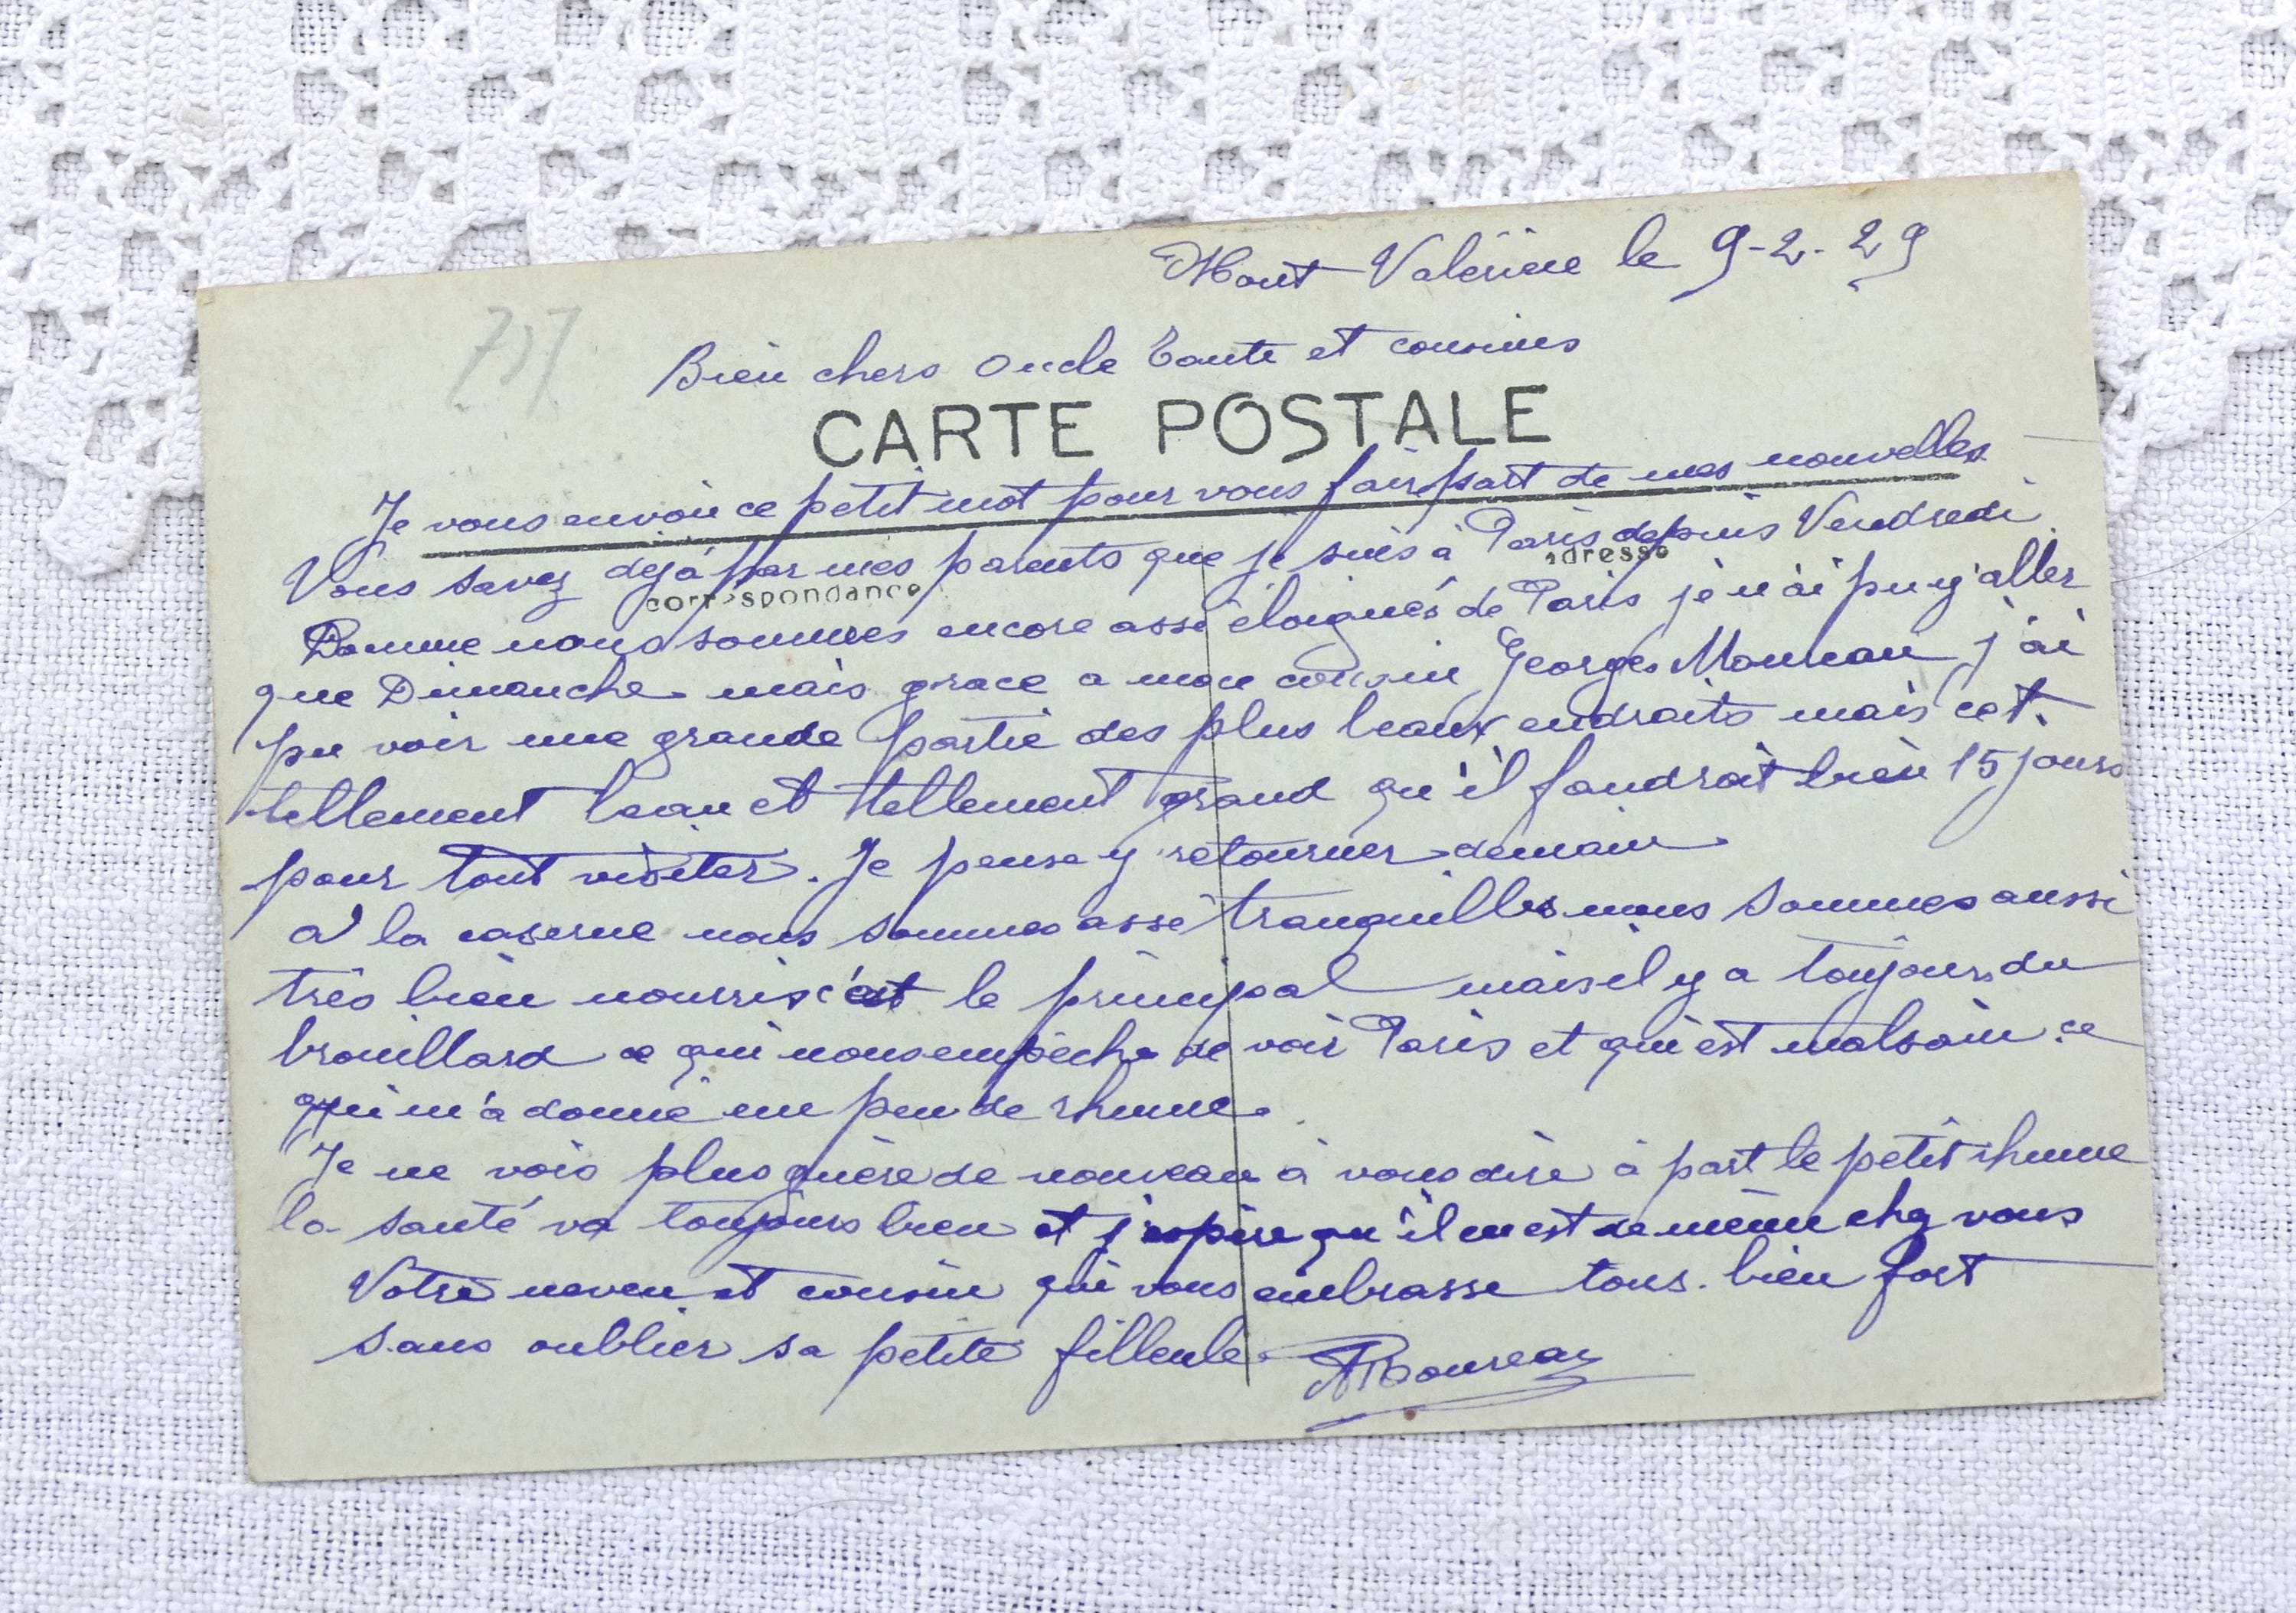 Mont Valérien le 9-2-29
Bien chers Oncle Tante et cousins
CARTE POSTALE
Je vous envoie ce petit mot pour vous fair part de mes nouvelles
Vous savez déjà par mes parents que je suis à Paris depuis Vendredi
adresse
correspondance
nous sommes encore assé éloignés de Paris je n'ai pu y aller
que Dimanche mais grace a mon cousin Georges j'ai
pu voir une grande partie des plus beaux endroits mais cet
tellement beau et tellement grand qu'il faudrait bien 15 jours
pour tout visiter. Je pense y retourner demain
a la caserne nous sommes assé tranquilles nous sommes aussi
très bien nourris c'est le principal mais il y a toujours du
brouillard ce qui nous empêche de voir Paris et qui est malsain ce
qui m'a donné un peu de rhume.
Je ne vois plus guère de nouveau à vous dire à part le petit rhume
la santé va toujours bien et j'espère qu'il en est de même chez vous
Votre neveu et cousin qui vous embrasse tous bien fort
sans oublier sa petite filleule